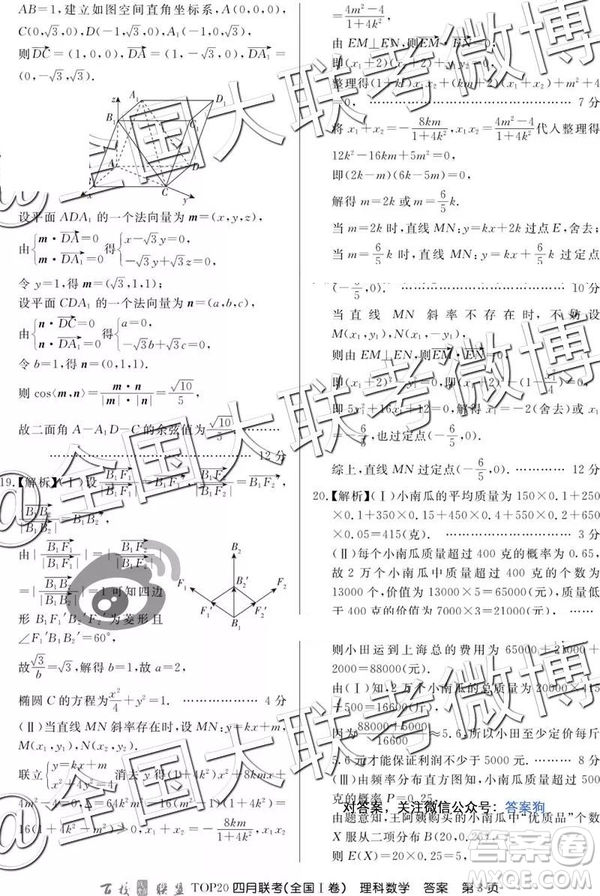 AB=1,建立如图空间直角坐标系,A(0,0,0),
C(0,√3,0),D(-1,√3,0),
则DC=(1,0,0),DA=(1,-√3,0),DA₁=
(0,-√3,√3).
z
A₁
D₁
B₁
C₁
A
D
B
C
x
设平面 ADA₁ 的一个法向量为 m=(x,y,z),
由{m·DA=0 m·DA₁=0 得{x-√3y=0
令 y=1,得 m=(√3,1,1);
设平面 CDA₁ 的一个法向量为 n=(a,b,c),
由{n·DC=0 n·DA₁=0 得{a=0
令 b=1,得 n=(0,1,1).
则 cos⟨m,n⟩=m·n/|m||n|=√10/5,
故二面角 A-A₁D-C 的余弦值为√10/5.
12 分
19.【解析】(Ⅰ)设
形 B₁F₁′B₂′F₂′为菱形且
∠F₁′B₁B₂′=60°,
故√3/b=√3,解得 b=1,故 a=2,
椭圆 C 的方程为x²/4+y²=1. 4 分
(Ⅱ)当直线 MN 斜率存在时,设 MN:y=kx+m,
M(x₁,y₁),N(x₂,y₂),
联立{y=kx+m 消去 y 得(1+4k²)x²+
16(1+4k²-m²)>0,x₁+x₂=-8km/1+4k²,
=4m²-4/1+4k².
由 EM⊥EN,则EM·EN=
即(x₁+2)(x₂+2)
整理得(1+k²)x₁x₂+(km+2)(x₁+x₂)+m²+4
=0, 7 分
将 x₁+x₂=-8km/1+4k²,x₁x₂=4m²-4/1+4k²代入整理得
12k²-16km+5m²=0,
即(2k-m)(6k-5m)=0,
解得 m=2k 或 m=6/5k.
当 m=2k 时,直线 MN:y=kx+2k 过点 E,舍去;
当 m=6/5k 时,直线 MN:y=kx+6/5k 过定点
(-6/5,0). 10 分
当直线 MN 斜率不存在时,不妨设
M(x₁,y₁),N(x₁,-y₁),
由 EM⊥EN,则EM·EN=0,
即(x₁+2)²-y₁²=0,(x₁+2)²-(1-x₁²/4)=0,
即 5x₁²+16x₁+12=0,解得 x₁=-2(舍去)或 x₁
=-6/5,也过定点(-6/5,0).
综上,直线 MN 过定点(-6/5,0). 12 分
20.【解析】(Ⅰ)小南瓜的平均质量为 150×0.1+250
×0.1+350×0.15+450×0.4+550×0.2+650
×0.05=415(克). 3 分
(Ⅱ)每个小南瓜质量超过 400 克的概率为 0.65,
故 2 万个小南瓜中质量超过 400 克的个数为
13000,价值为 13000×5=65000(元),质量低于
400 克的价值为 7000×3=21000(元).
则小田运到上海总的费用为 65000+21000+
2000=88000(元).
由(Ⅰ)知,2 万个小南瓜的质量为 20000×415
÷500=16600(斤),
因为88000/16600≈5.6,所以小田按照每斤不低于
5.6 元才能保证利润不少于 5000 元.
(Ⅲ)由频率分布直方图知,小南瓜质量超过
概率 P=0.25,
由题意知,王阿姨购买的小南瓜“优质品”个数
X 服从二项分布 B(20,0.25),
则 E(X)=20×
对答案,关注微信公众号:答案狗
百校联盟 TOP20 四月联考(全国Ⅰ卷) 理科数学 答案 第3页
@全国大联考微博
@全国大联考微博
@全国大联考微博